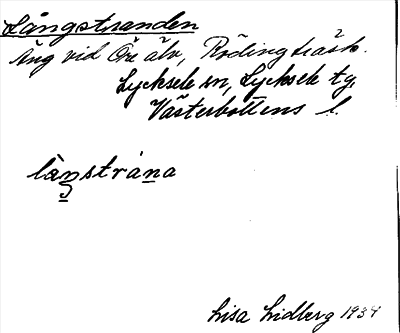 Långstranden
Äng vid Öre älv, Rödingträsk.
Lycksele sn, Lycksele tg,
Västerbottens l.
làŋstrána
Lisa Lidberg 1934